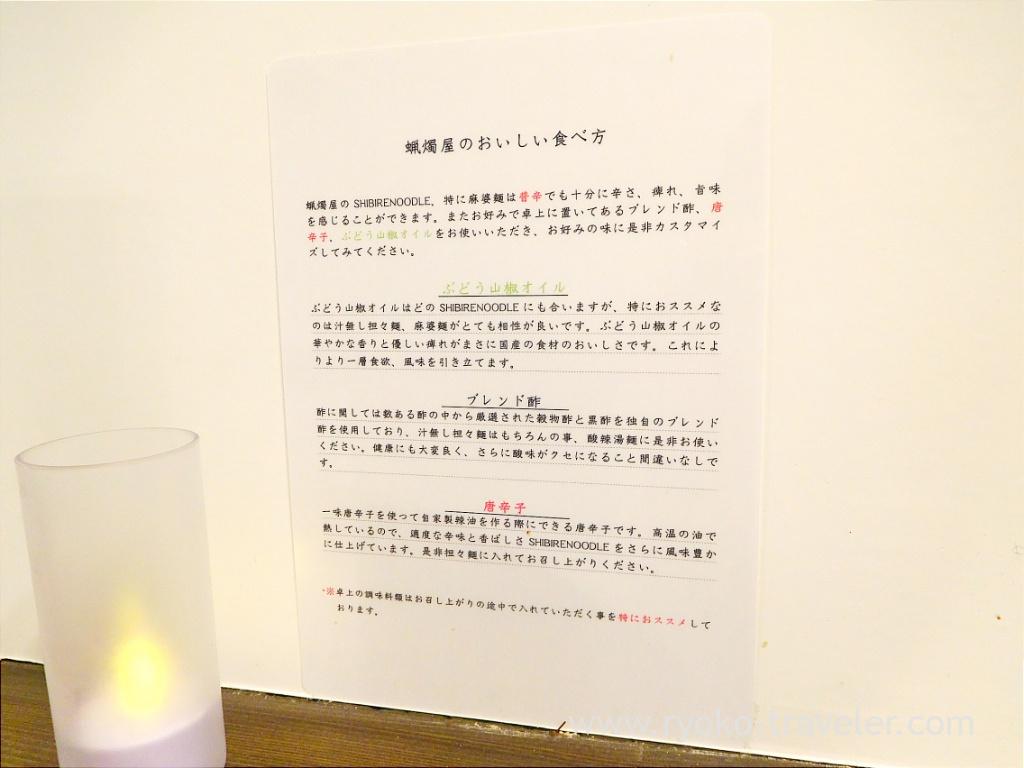 蝋燭屋のおいしい食べ方
蝋燭屋の SHIBIRENOODLE、特に麻婆麺は普辛でも十分に辛さ、痺れ、旨味
を感じることができます。またお好みで卓上に置いてあるブレンド酢、唐
辛子、ぶどう山椒オイルをお使いいただき、お好みの味に是非カスタマイ
ズしてみてください。
ぶどう山椒オイル
ぶどう山椒オイルはどの SHIBIRENOODLE にも合いますが、特におススメな
のは汁無し担々麺、麻婆麺がとても相性が良いです。ぶどう山椒オイルの
華やかな香りと優しい痺れがまさに国産の食材のおいしさです。これによ
りより一層食欲、風味を引き立てます。
ブレンド酢
酢に関しては数ある酢の中から厳選された穀物酢と黒酢を独自のブレンド
酢を使用しており、汁無し担々麺はもちろんの事、酸辣湯麺に是非お使い
ください。健康にも大変良く、さらに酸味がクセになること間違いなしで
す。
唐辛子
一味唐辛子を使って自家製辣油を作る際にできる唐辛子です。高温の油で
熱しているので、適度な辛味と香ばしさ SHIBIRENOODLE をさらに風味豊か
に仕上げています。是非担々麺に入れてお召し上がりください。
・※卓上の調味料類はお召し上がりの途中で入れていただく事を特におススメして
おります。
www.ryoko-traveler.com